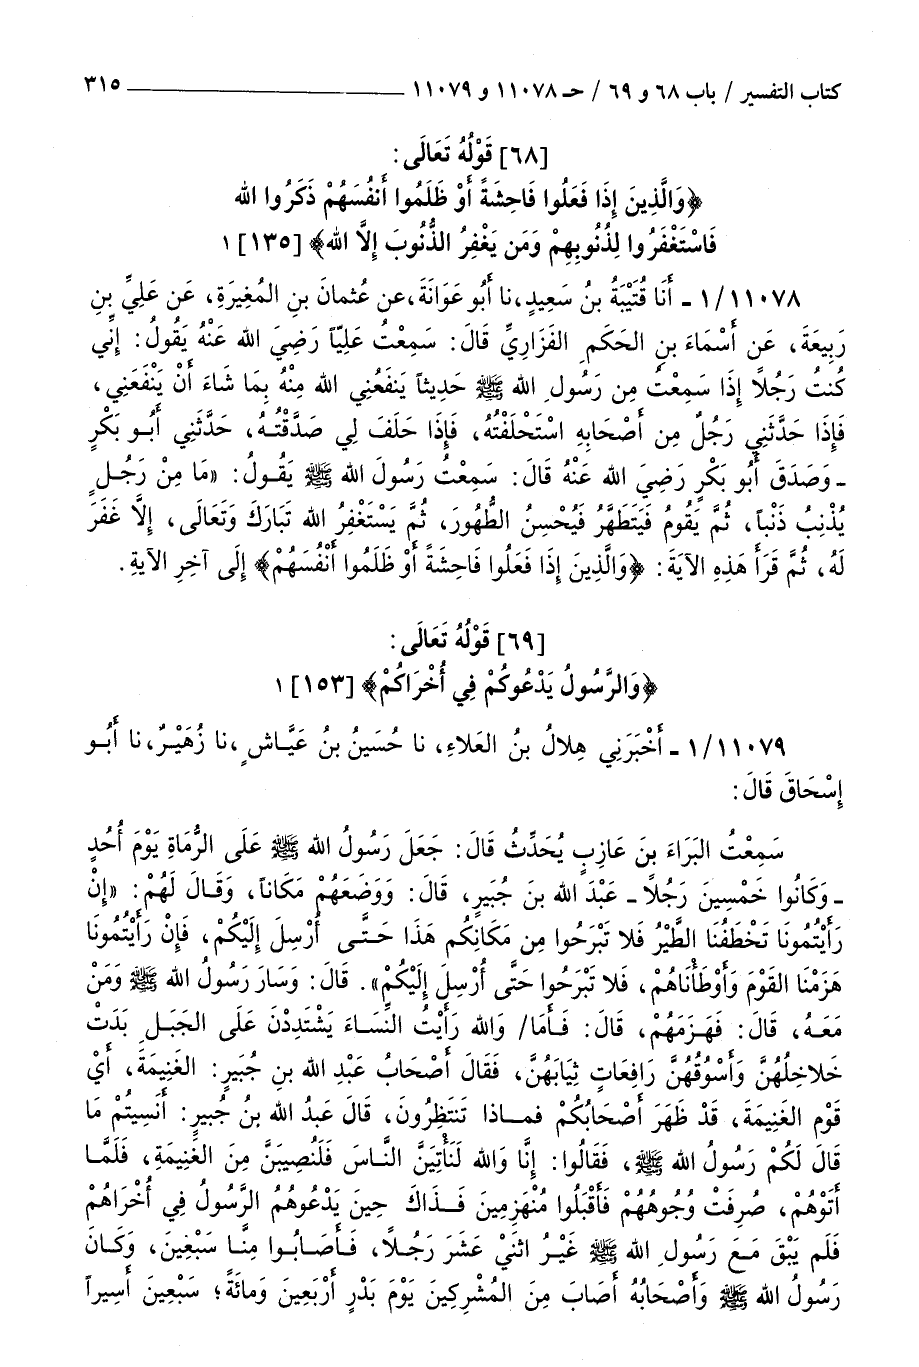 كتاب التفسير / باب ٦٨ و ٦٩ / حـ ١١٠٧٨ و ١١٠٧٩ ـــــــــــــــــــــ ٣١٥
[٦٨] قَوْلُهُ تَعَالَى:
﴿وَالَّذِينَ إِذَا فَعَلُوا فَاحِشَةً أَوْ ظَلَمُوا أَنْفُسَهُمْ ذَكَرُوا الله
فَاسْتَغْفَرُوا لِذُنُوبِهِمْ وَمَن يَغْفِرُ الذُّنُوبَ إِلَّا الله﴾ [١٣٥] ١
١/١١٠٧٨ ـ أَنَا قُتَيْبَةُ بنُ سَعِيدٍ، نا أَبُو عَوَانَةَ، عن عُثمانَ بنِ المُغِيرَةِ، عَن عَلِيِّ بنِ
رَبِيعَةَ، عَن أَسْمَاءَ بنِ الحَكَمِ الفَزَارِيِّ قَالَ: سَمِعْتُ عَلِيّاً رَضِيَ الله عَنْهُ يَقُولُ: إِنِّي
كُنتُ رَجُلاً إِذَا سَمِعْتُ مِن رَسُولِ الله ﷺ حَدِيثاً يَنفَعُنِي الله مِنْهُ بِمَا شَاءَ أَنْ يَنْفَعَنِي،
فَإِذَا حَدَّثَنِي رَجُلٌ مِن أَصْحَابِهِ اسْتَحْلَفْتُهُ، فَإِذَا حَلَفَ لِي صَدَّقْتُهُ، حَدَّثَنِي أَبُو بَكْرٍ
ـ وَصَدَقَ أَبُو بَكْرٍ رَضِيَ الله عَنْهُ قَالَ: سَمِعْتُ رَسُولَ الله ﷺ يَقُولُ: «مَا مِنْ رَجُلٍ
يُذْنِبُ ذَنْباً، ثُمَّ يَقُومُ فَيَتَطَهَّرُ فَيُحْسِنُ الطُّهُورَ، ثُمَّ يَسْتَغْفِرُ الله تَبَارَكَ وَتَعَالَى، إِلَّا غَفَرَ
لَهُ، ثُمَّ قَرَأَ هَذِهِ الآيَةَ: ﴿وَالَّذِينَ إِذَا فَعَلُوا فَاحِشَةً أَوْ ظَلَمُوا أَنْفُسَهُمْ﴾ إِلَى آخِرِ الآيَةِ.
[٦٩] قَوْلُهُ تَعَالَى:
﴿وَالرَّسُولُ يَدْعُوكُمْ فِي أُخْرَاكُمْ﴾ [١٥٣] ١
١/١١٠٧٩ ـ أَخْبَرَنِي هِلَالُ بنُ العَلَاءِ، نا حُسَينُ بنُ عَيَّاشٍ، نا زُهَيْرٌ، نا أَبُو
إِسْحَاقَ قَالَ:
سَمِعْتُ البَرَاءَ بنَ عَازِبٍ يُحَدِّثُ قَالَ: جَعَلَ رَسُولُ الله ﷺ عَلَى الرُّمَاةِ يَوْمَ أُحُدٍ
ـ وَكَانُوا خَمْسِينَ رَجُلاً ـ عَبْدَ الله بنَ جُبَيرٍ، قَالَ: وَوَضَعَهُمْ مَكَاناً، وَقَالَ لَهُمْ: «إِنْ
رَأَيْتُمُونَا تَخْطَفُنَا الطَّيْرُ فَلَا تَبْرَحُوا مِن مَكَانِكُم هَذَا حَتَّى أُرْسِلَ إِلَيْكُمْ، فَإِنْ رَأَيْتُمُونَا
هَزَمْنَا القَوْمَ وَأَوْطَأْنَاهُمْ، فَلَا تَبْرَحُوا حَتَّى أُرْسِلَ إِلَيْكُمْ». قَالَ: وَسَارَ رَسُولُ الله ﷺ وَمَنْ
مَعَهُ، قَالَ: فَهَزَمَهُمْ، قَالَ: فَأَمَا/ وَالله رَأَيْتُ النِّسَاءَ يَشْتَدِدْنَ عَلَى الجَبَلِ بَدَتْ
خَلَاخِلُهُنَّ وَأَسْوُقُهُنَّ رَافِعَاتِ ثِيَابَهُنَّ، فَقَالَ أَصْحَابُ عَبْدِ الله بنِ جُبَيرٍ: الغَنِيمَةَ، أَيْ
قَوْمِ الغَنِيمَةَ، قَدْ ظَهَرَ أَصْحَابُكُمْ فماذا تَنتَظِرُونَ، قَالَ عَبدُ الله بنُ جُبيرٍ: أَنَسِيتُمْ مَا
قَالَ لَكُمْ رَسُولُ الله ﷺ، فَقَالُوا: إِنَّا وَالله لَنَأْتِيَنَّ النَّاسَ فَلَنُصِيبَنَّ مِنَ الغَنِيمَةِ، فَلَمَّا
أَتَوْهُمْ، صُرِفَتْ وُجُوهُهُمْ فَأَقْبَلُوا مُنْهَزِمِينَ فَذَاكَ حِينَ يَدْعُوهُمُ الرَّسُولُ فِي أُخْرَاهُمْ
فَلَم يَبْقَ مَعَ رَسُولِ الله ﷺ غَيْرُ اثْنَيْ عَشَرَ رَجُلاً، فَأَصَابُوا مِنَّا سَبْعِينَ، وَكَانَ
رَسُولُ الله ﷺ وَأَصْحَابُهُ أَصَابَ مِنَ المُشْرِكِينَ يَوْمَ بَدْرٍ أَرْبَعِينَ وَمائَةً؛ سَبْعِينَ أَسِيراً